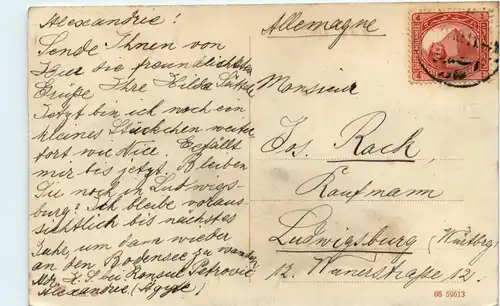 Alexandrie!
Sende Ihnen von
Hier die freundlichsten
Grüße Ihre Hilda
Jetzt bin ich noch ein
kleines Stückchen weiter
fort wie Nice. Gefällt
mir bis jetzt. Bleiben
Sie noch in Ludwigs-
burg? Ich bleibe voraus-
sichtlich bis nächstes
Jahr, um dann wieder
an den Bodensee zu wandern
Adr. H. S. bei Konsul Petrovic
Alexandrie (Agypt.)
Allemagne
Monsieur
Jos. Rack,
Kaufmann
Ludwigsburg (Württbg.)
12.
08 59613